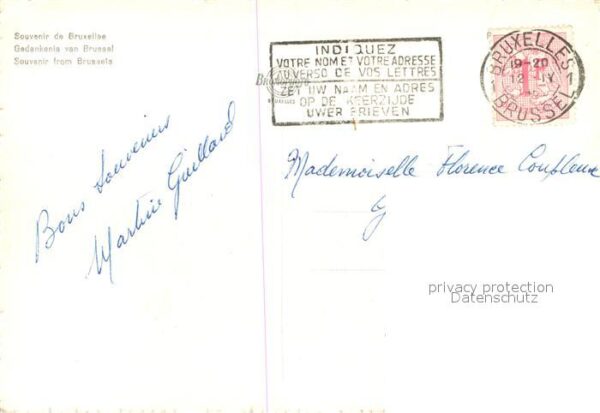 Souvenir de Bruxelles
Gedenkenis van Brussel
Souvenir from Brussels
INDIQUEZ
VOTRE NOM ET VOTRE ADRESSE
AU VERSO DE VOS LETTRES
ZET UW NAAM EN ADRES
OP DE KEERZIJDE
UWER BRIEVEN
BRUXELLES
19-20
BRUSSEL
Bons Souvenirs
Martine Guillard
Mademoiselle Florence
privacy protection
Datenschutz